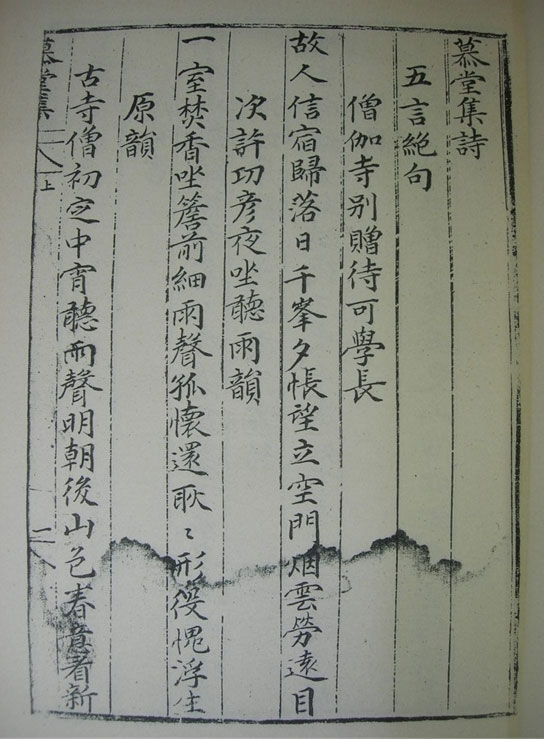 慕堂集詩
五言絶句
僧伽寺別贈待可學長
故人信宿歸落日千峯夕悵望立空門烟雲勞遠目
次許功彦夜坐聽雨韻
一室焚香坐簷前細雨聲孤懷還耿〻形役愧浮生
原韻
古寺僧初定中宵聽雨聲明朝後山色春意看新
慕堂集 上 一